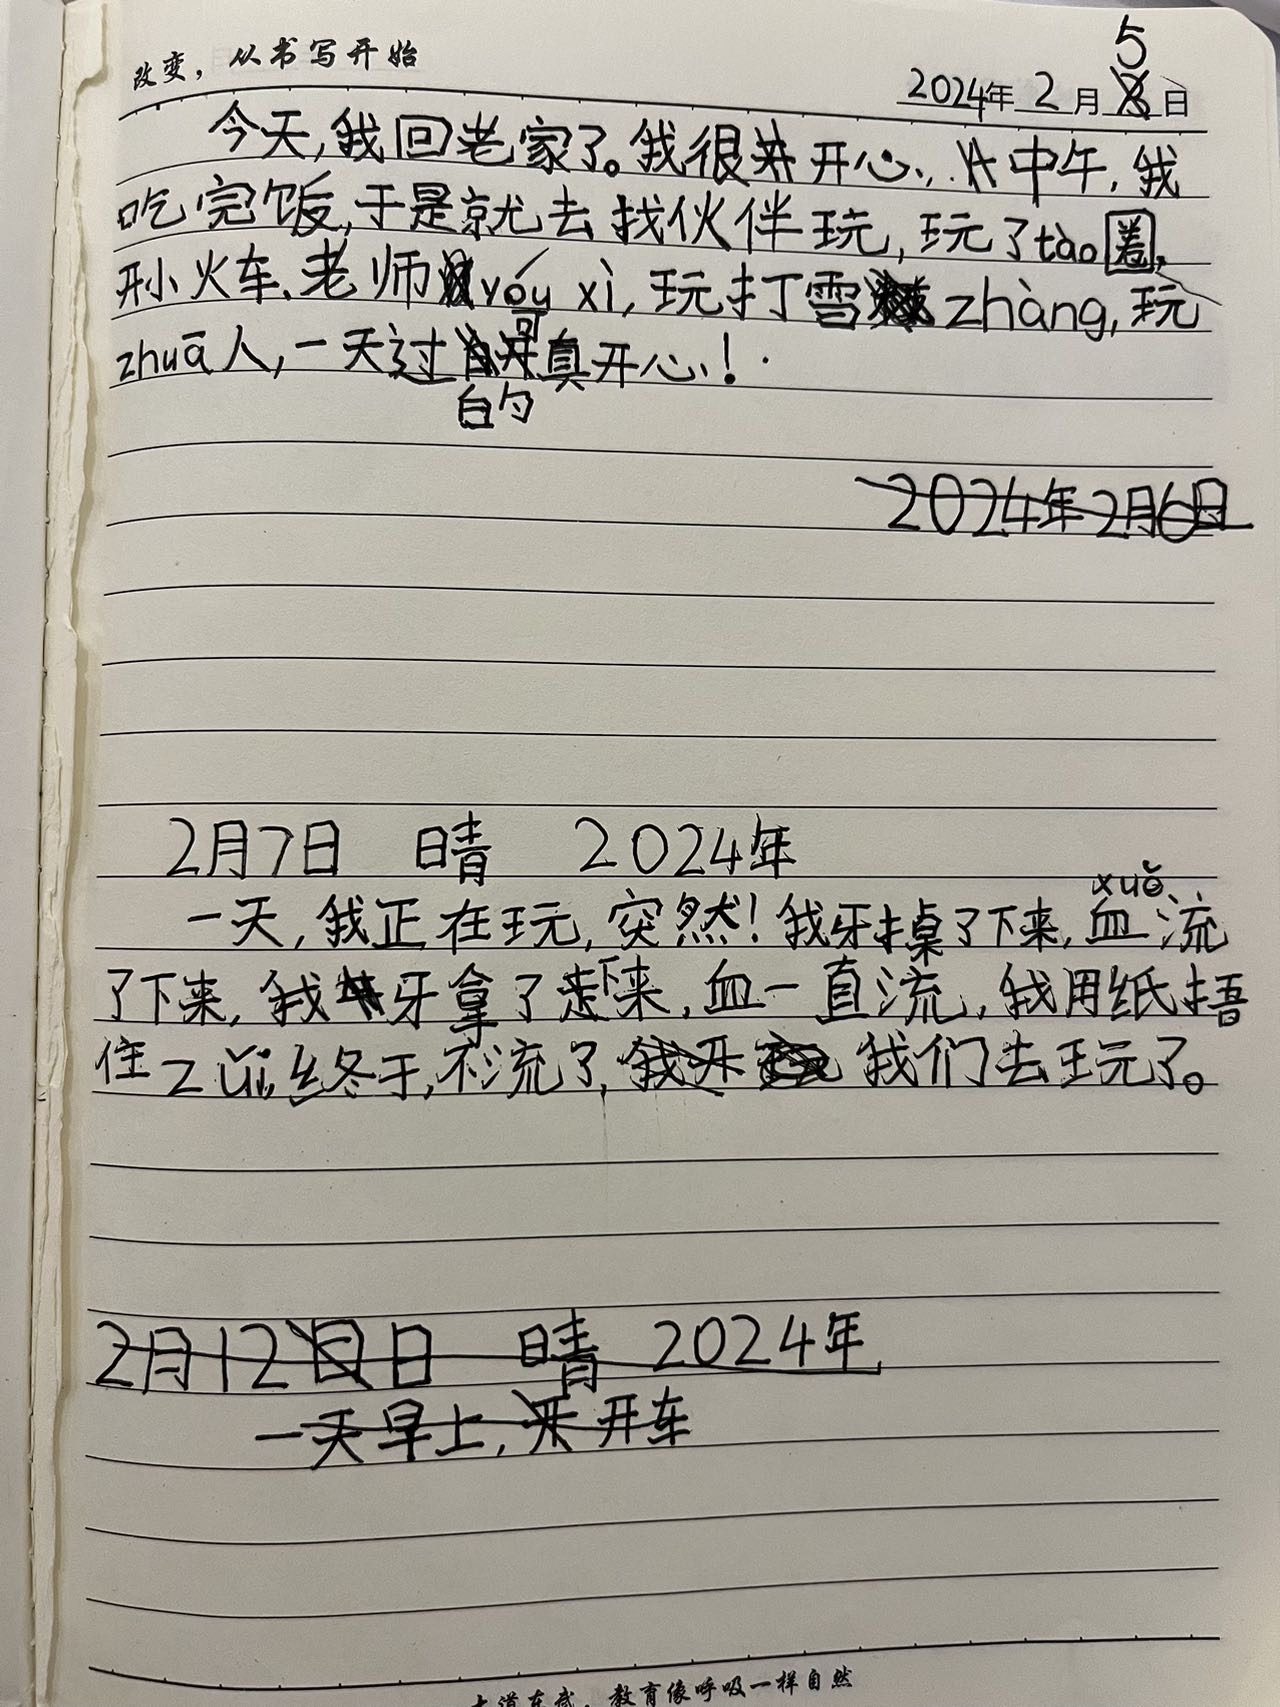 改变，从书写开始
2024年 2 月 5 日
今天，我回老家了。我很开心，中午，我
吃完饭，于是就去找伙伴玩，玩了tào圈，
开小火车、老师yóu xì，玩打雪zhàng，玩
zhuā人，一天过的可真开心！
2024年2月6日
2月7日 晴 2024年
xuě
一天，我正在玩，突然！我牙掉了下来，血流
了下来，我牙拿了下来，血一直流，我用纸捂
住zuǐ，终于，不流了，我们去玩了。
2月12日 晴 2024年
一天早上，开车
教育像呼吸一样自然